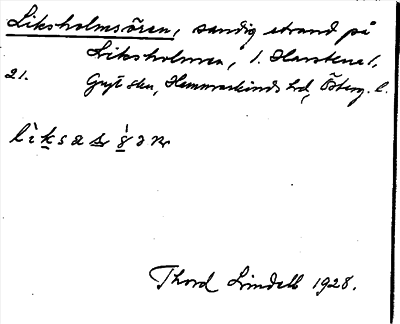 Liksholmsören, sandig strand på
Liksholmen, l. Harstena l,
21. Gryts skn, Hammarkinds hd, Österg. l.
Thord Lindell 1928.